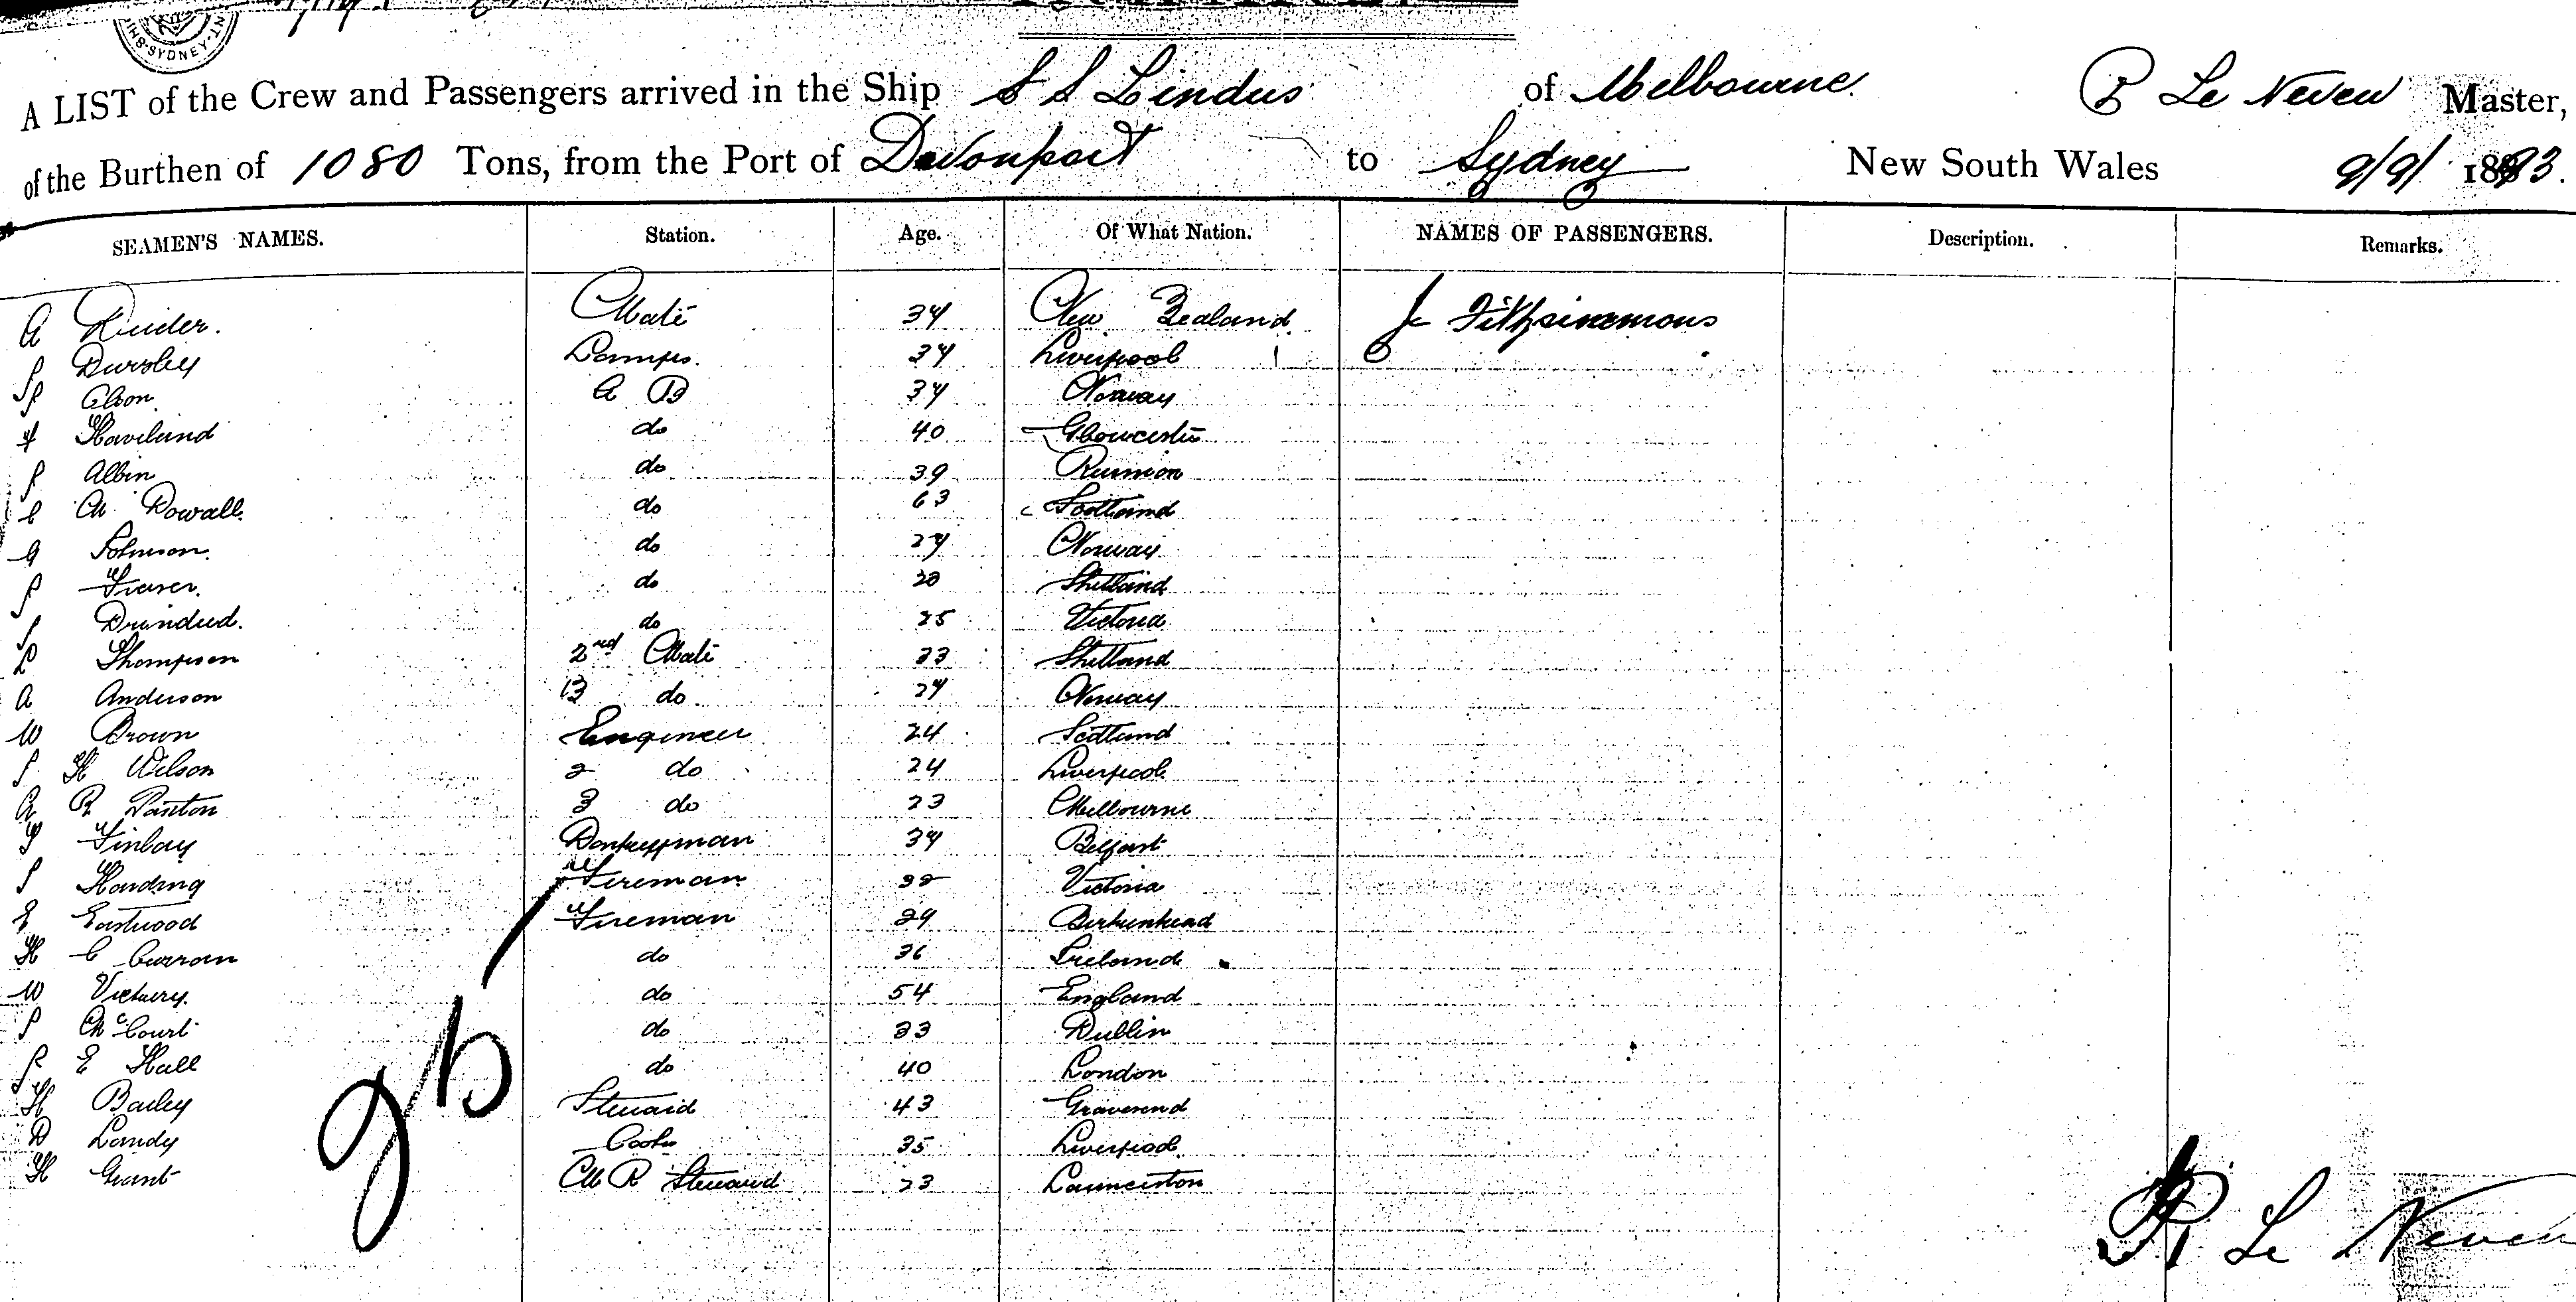 SYDNEY
A LIST of the Crew and Passengers arrived in the Ship S S Lindus of Melbourne. P Le Neveu Master,
of the Burthen of 1080 Tons, from the Port of Devonport to Sydney New South Wales 9/9/ 1893.
SEAMEN'S NAMES. Station. Age. Of What Nation. NAMES OF PASSENGERS. Description. Remarks.
A Kinder. Mate 34 New Zealand. J Fitzsimmons
J Dursley Lamps. 34 Liverpool
P Olson A B 34 Norway
H Haviland do 40 Gloucester
J Albin do 39 Reunion
C M Dowall. do 63 Scotland
A Johnson. do 24 Norway
J Fraser. do 20 Shetland
J do 25 Victoria
L Thompson 2nd Mate 33 Shetland
A Anderson B do 24 Norway
W Brown Engineer 24 Scotland
J H Wilson 2 do 24 Liverpool
A R Paxton 3 do 23 Melbourne
G Finlay Donkeyman 34 Belfast
J Harding Fireman 32 Victoria
E Eastwood Fireman 29 Birkenhead
H C Curran do 36 Ireland
W Victory. do 54 England
J McCourt do 33 Dublin
J E Hall do 40 London
H Bailey Steward 43 Gravesend
D Landy Cook 35 Liverpool.
H Grant M R Steward 23 Launceston
P Le Neveu